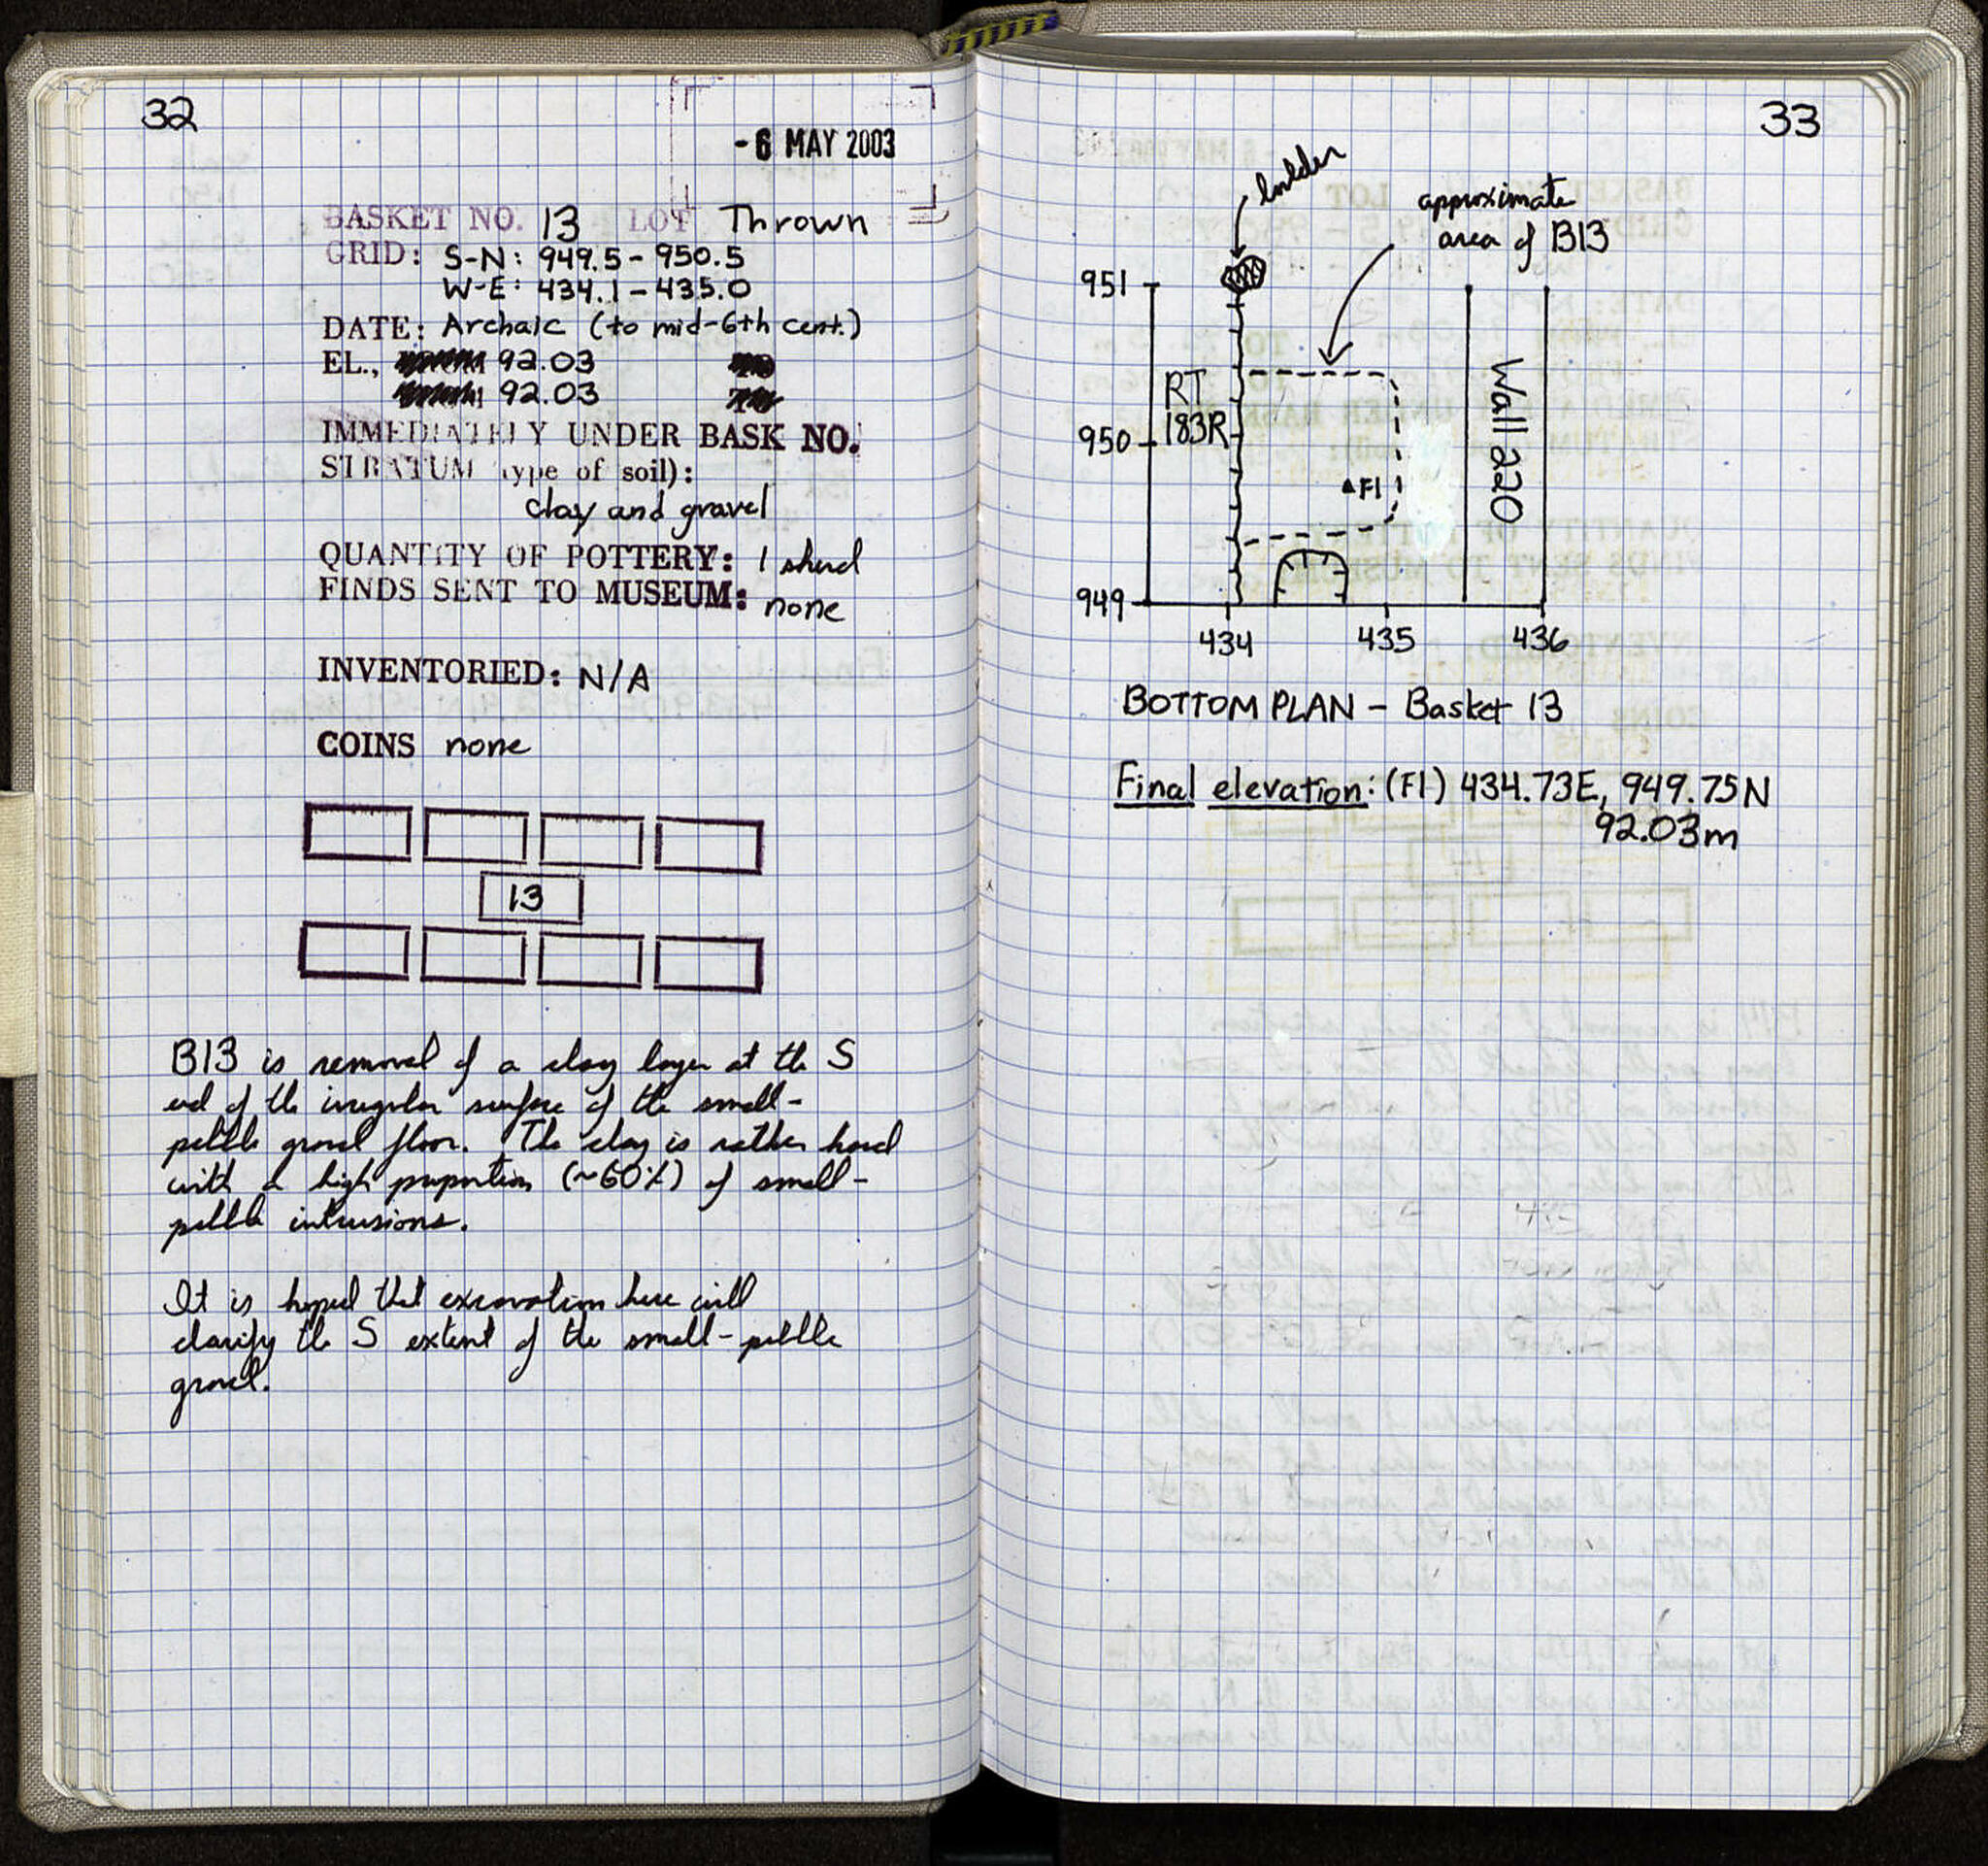 32
- 6 MAY 2003
BASKET NO. 13 LOT Thrown
GRID: S-N: 949.5 - 950.5
W-E: 434.1 - 435.0
DATE: Archaic (to mid-6th cent.)
EL., 92.03
92.03
IMMEDIATELY UNDER BASK NO.
STRATUM (type of soil):
clay and gravel
QUANTITY OF POTTERY: 1 sherd
FINDS SENT TO MUSEUM: none
INVENTORIED: N/A
COINS none
13
B13 is removal of a clay layer at the S
end of the irregular surface of the small-
pebble gravel floor. The clay is rather hard
with a high proportion (~60%) of small-
pebble intrusions.
It is hoped that excavation here will
clarify the S extent of the small-pebble
gravel.
33
boulder
approximate
area of B13
951
RT
183R
950
Wall 220
F1
949
434 435 436
BOTTOM PLAN - Basket 13
Final elevation: (F1) 434.73E, 949.75N
92.03m